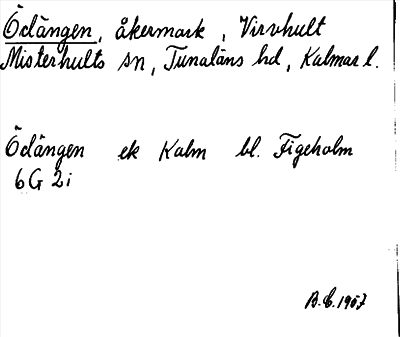 Ödängen, åkermark, Virvhult
Misterhults sn, Tunaläns hd, Kalmar l.
Ödängen ek Kalm bl. Figeholm
6G 2i
B.E. 1957